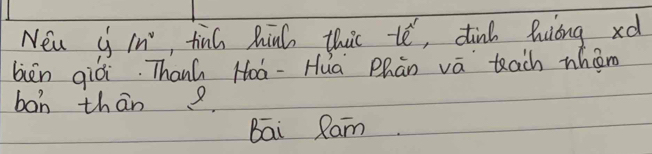 Nêu ý /nº, tình hình thực tế, định hướng xd
biên giới. Thanh Hoá - Hủa Phăn và trách nhiệm
bản thân ?
Bài làm.